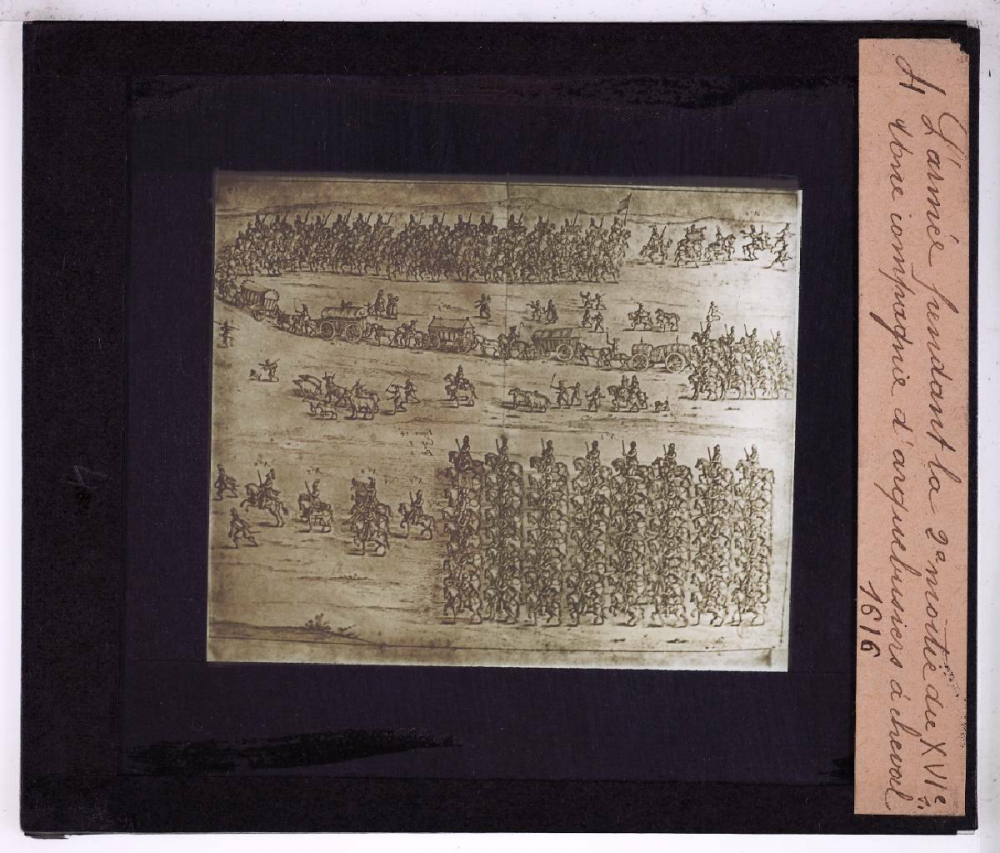 L'armée pendant la 2e moitié du XVIe s.
A Une compagnie d'arquebusiers à cheval
1616